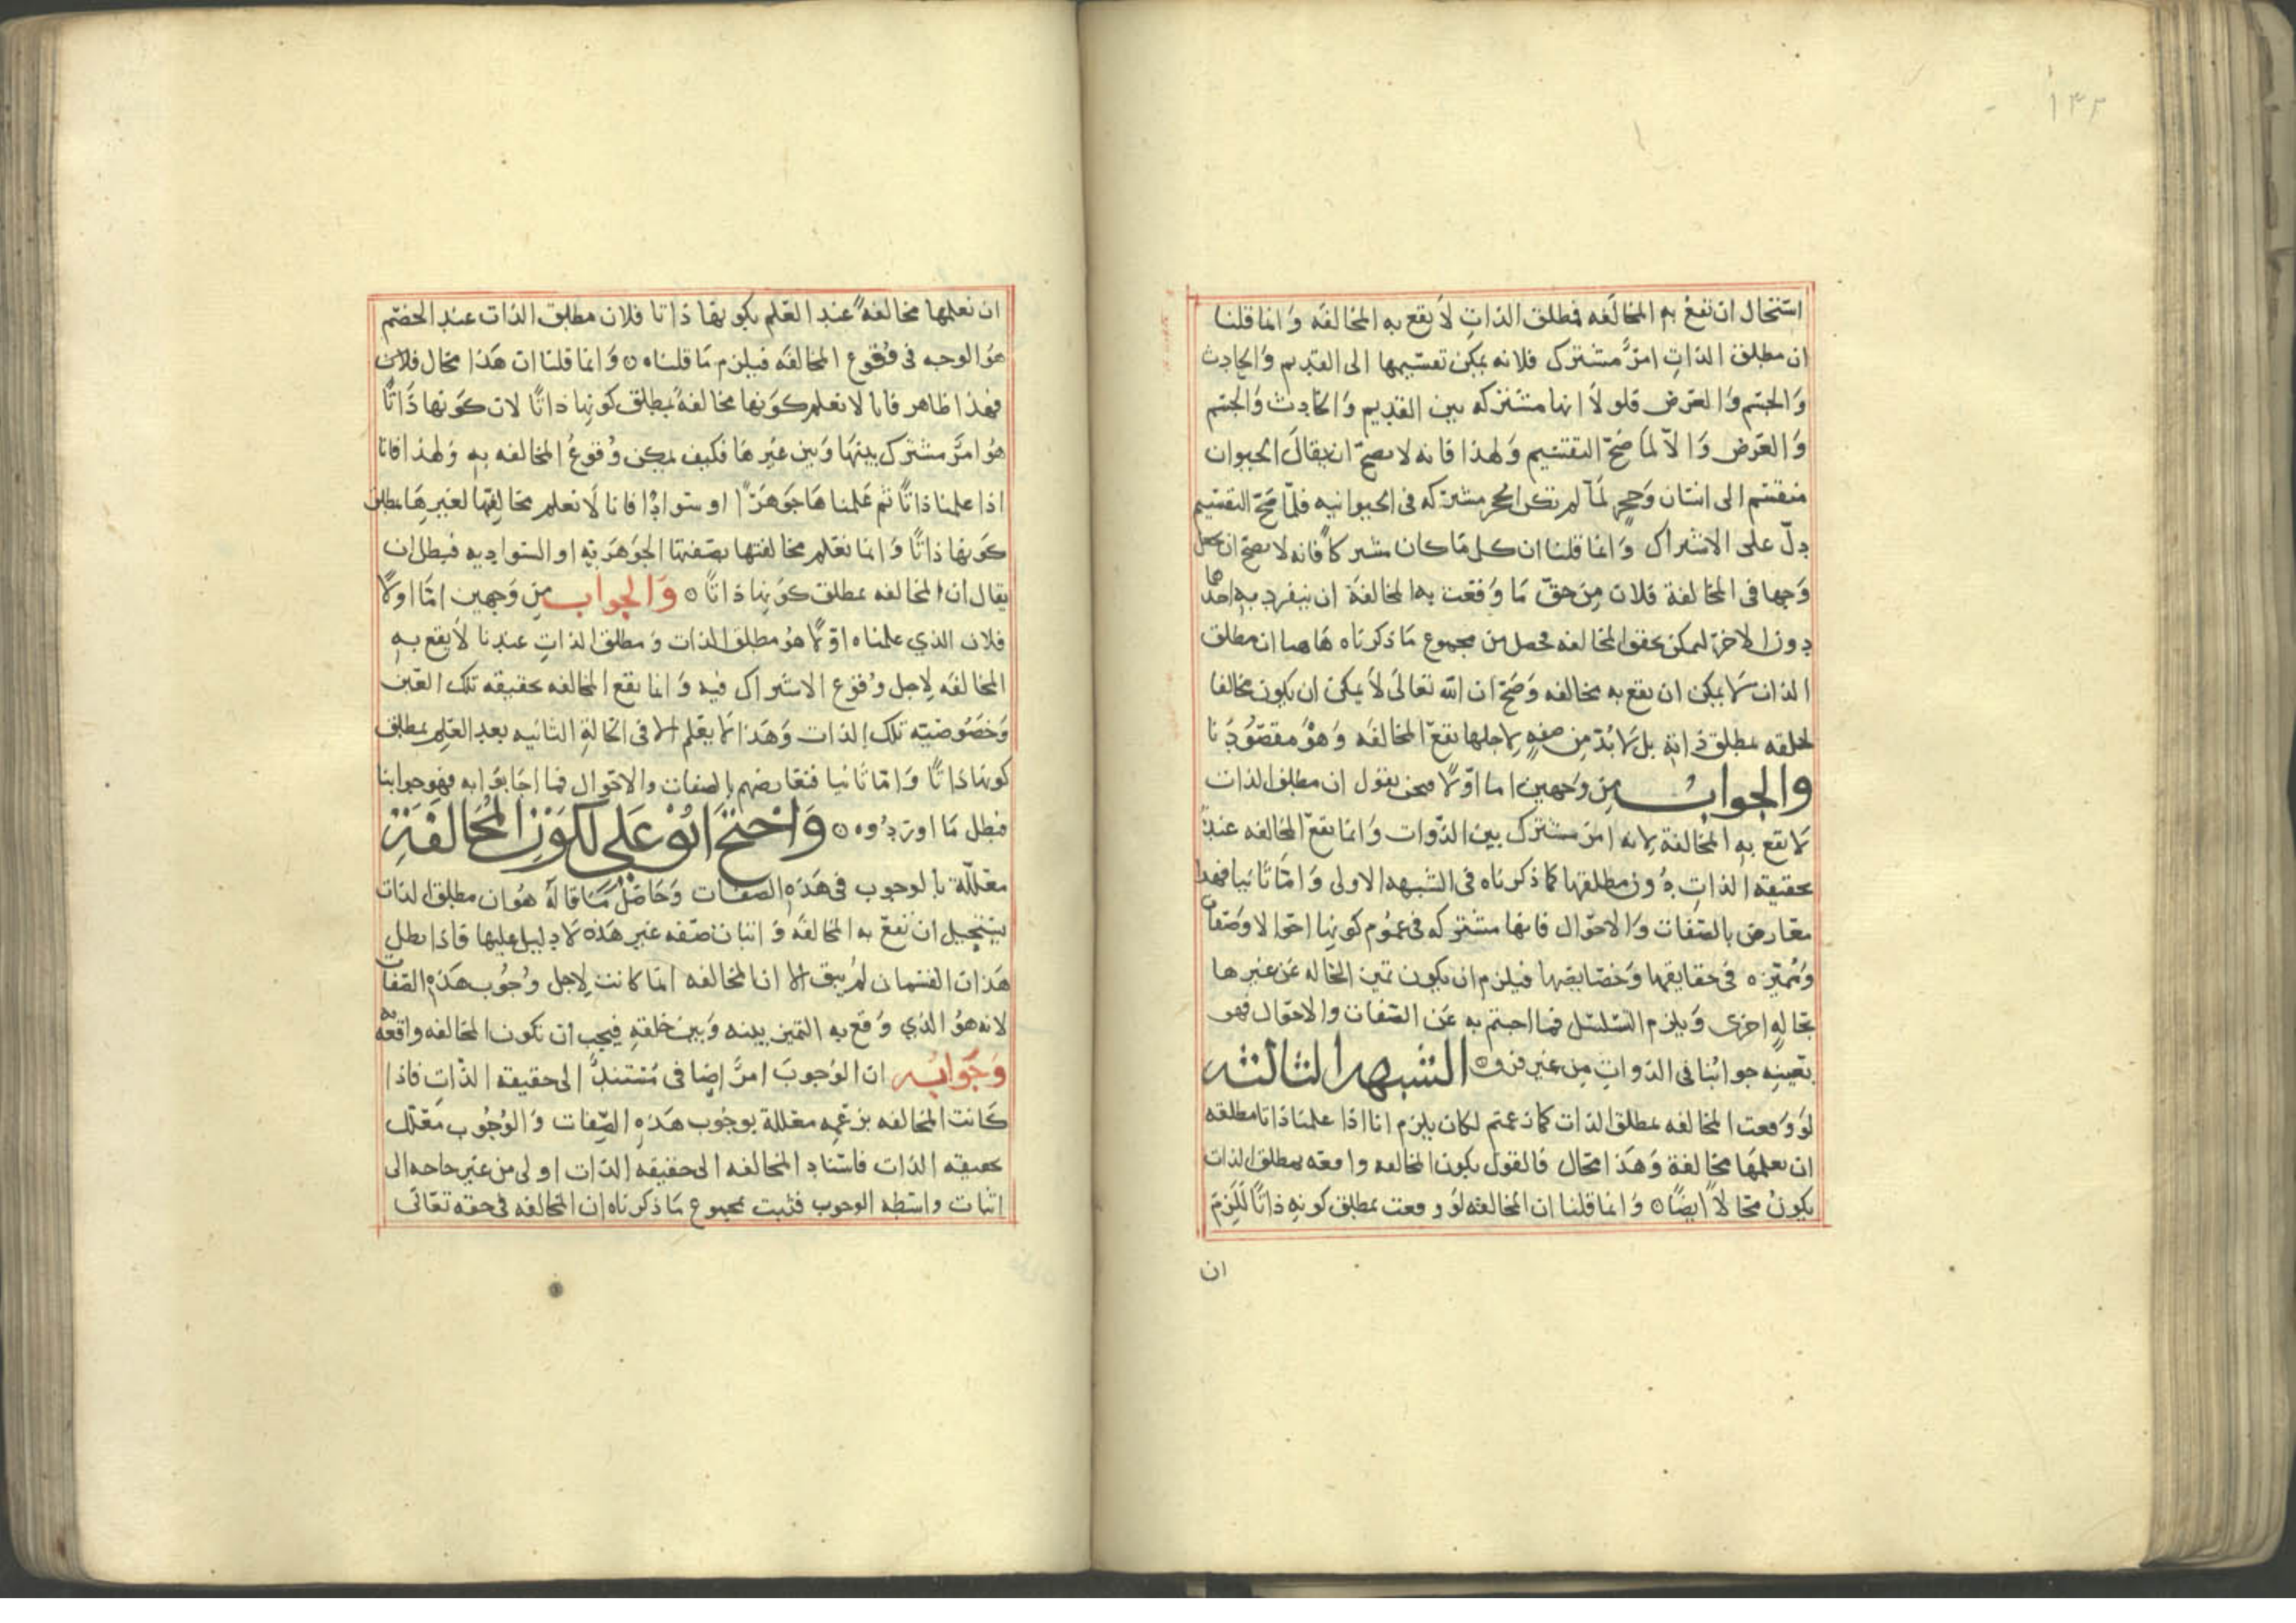 ١٣٢
استحال ان تقع به المخالفه فمطلق الذاتِ لا يقع به المخالفه وانما قلنا
ان مطلق الذاتِ امرٌ مشترك فلانه يمكن تقسيمها الى القديم والحادث
والجسم والعرض فلولا انها مشتركه بين القديم والحادث والجسم
والعرض والّا لما صحّ التقسيم ولهذا فانه لا يصحّ ان يقال الحيوان
منقسم الى انسان وحجرٍ لمّا لم تكن الحجر مشتركه في الحيوانيه فلمّا صحّ التقسيم
دلّ على الاشتراك وانما قلنا ان كل ما كان مشتركاً فانه لا يصح ان يجعل
وجها في المخالفة فلان من حقّ ما وقعت به المخالفة ان ينفرد به احدها
دون الاخر ليمكن تحقق المخالفه فحصل من مجموع ما ذكرناه هاهنا ان مطلق
الذات لا يمكن ان يقع به مخالفه وصح ان الله تعالى لا يمكن ان يكون مخالفا
لخلقه بمطلق ذاته بل لا بدّ من صفةٍ لاجلها تقع المخالفه وهو مقصودنا
والجوابُ من وجهين اما اوّلاً فنحن نقول ان مطلق الذات
لا تقع به المخالفة لانه امر مشترك بين الذّوات وانما يقع المخالفه عندنا
بحقيقه الذاتِ دون مطلقها كما ذكرناه في الشبهه الاولى وامّا ثانيا فهذا
معارض بالصّفات والاحوال فانها مشتركه في عموم كونها احوالا وصفات
ومتميّزه في حقايقها وخصايصها فيلزم ان يكون تميز الحاله عن غيرها
بحالةٍ اخرى ويلزم التسلسل فما اجبتم به عن الصّفات والاحوال فهو
بعينِه جوابُنا في الذّواتِ من غير فرق ه الشبهه الثالثه
لو وقعت المخالفه بمطلق الذات كما زعمتم لكان يلزم انا اذا علمنا ذاتا مطلقه
ان نعلمها مخالفة وهذا محال فالقول بكون المخالفه واقعه بمطلق الذات
يكونُ محالاً ايضًا ه وانما قلنا ان المخالفه لو وقعت بمطلق كونه ذاتًا للَزِم
ان
ان نعلمها مخالفه عند العلم بكونها ذاتا فلان مطلق الذات عند الخصم
هو الوجه في وقوع المخالفه فيلزم ما قلناه ه وانما قلنا ان هذا محال فلان
فهذا ظاهر فانا لا نعلم كونها مخالفةً بمطلق كونها ذاتًا لان كونها ذاتًا
هو امرٌ مشترك بينها وبين غيرها فكيف يمكن وقوعُ المخالفه به ولهذا فانا
اذا علمنا ذاتًا ثم علمناها جوهرًا او سوادًا فانا لا نعلم مخالفتها لغيرها بمطلق
كونها ذاتًا وانما نعلم مخالفتها بصفتها الجوهريّه او السواديه فبطل ان
يقال ان المخالفه بمطلق كونها ذاتًا ه والجواب من وجهين امّا اولاً
فلان الذي علمناه اوّلاً هو مطلق الذات ومطلق الذاتِ عندنا لا يقع به
المخالفه لاجل وقوع الاشتراك فيه وانما يقع المخالفه بحقيقه تلك العين
وخصُوصيّه تلك الذات وهذا لا يعلم الا في الحالةِ الثانيه بعد العلم بمطلق
كونها ذاتًا وامّا ثانيا فنعارضهم بالصفات والاحوال فما اجابوا به فهو جوابنا
فبطل ما اوردُوه ه واحتجّ ابُو علي لكون المخالفة
معللّة بالوجوب في هذه الصفات وحاصل ما قاله هو ان مطلق الذات
يستحيل ان تقع به المخالفه واثبات صفه غير هذه لا دليل عليها فاذا بطل
هذان القسمان لم يبق الا ان المخالفه انما كانت لاجل وجوب هذه الصّفات
لانه هو الذي وقع به التميز بينه وبين خلقه فيجب ان تكون المخالفه واقعة به
وجوابُه ان الوُجوبَ امرٌ اضافى مُستندٌ الى حقيقه الذّاتِ فاذا
كانت المخالفه بزعمِه معللة بوجُوب هذه الصّفات والوُجُوب معلّل
بحقيقه الذات فاسناد المخالفه الى حقيقه الذّات اولى من غير حاجه الى
اثبات واسطه الوجوب فثبت بمجموع ما ذكرناه ان المخالفه في حقه تعالى